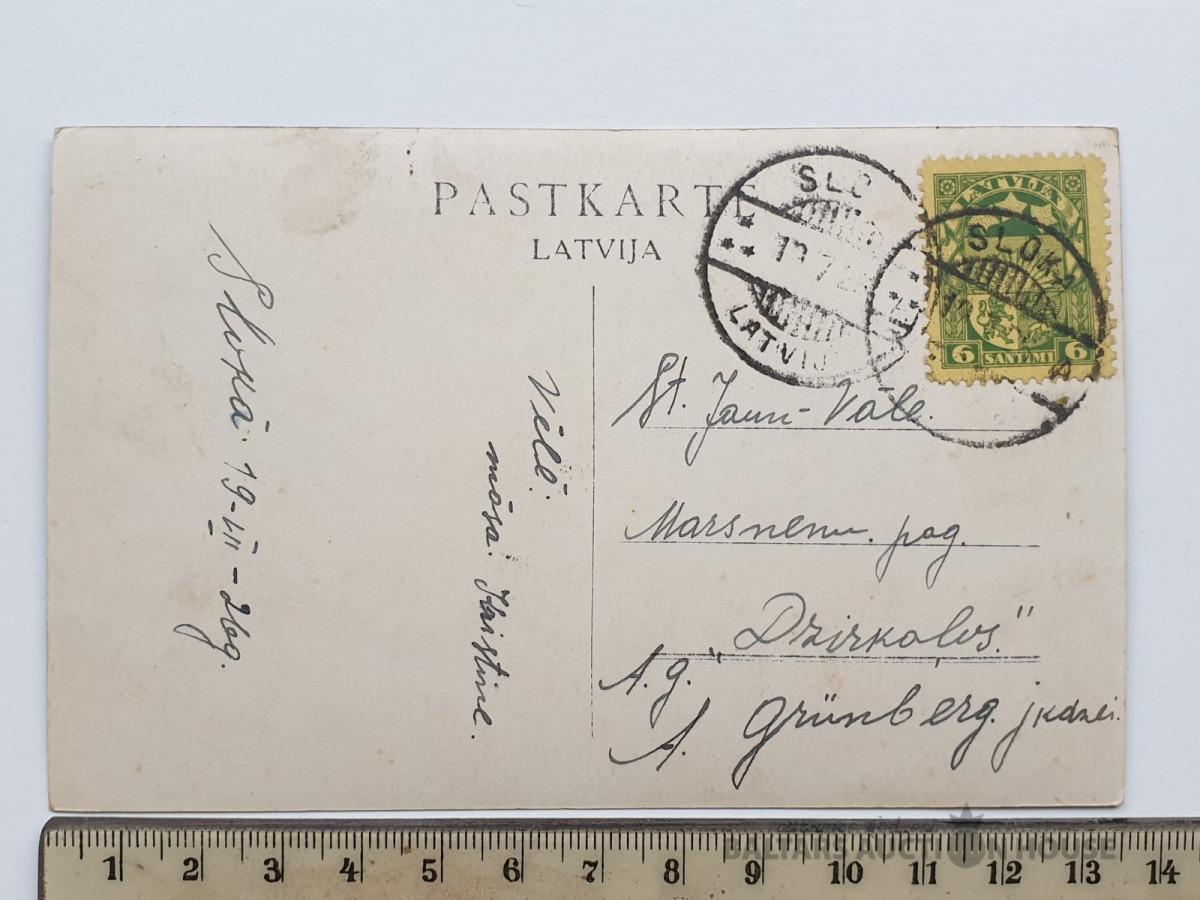 PASTKARTE
LATVIJA
SLO
19.7.2
LATVIJ
LATVIJA
SLOKA
6 SANTIMI 6
A
Slokā. 19-VII-26g.
Vēlē.
māsa. Kristine.
St. Jaun-Vāle.
Marsnenu. pag.
"Dzirkaļos."
A.g.
A. Grünberg. jkdzei.
1 2 3 4 5 6 7 8 9 10 11 12 13 14
BALTARS AUCTION HOUSE